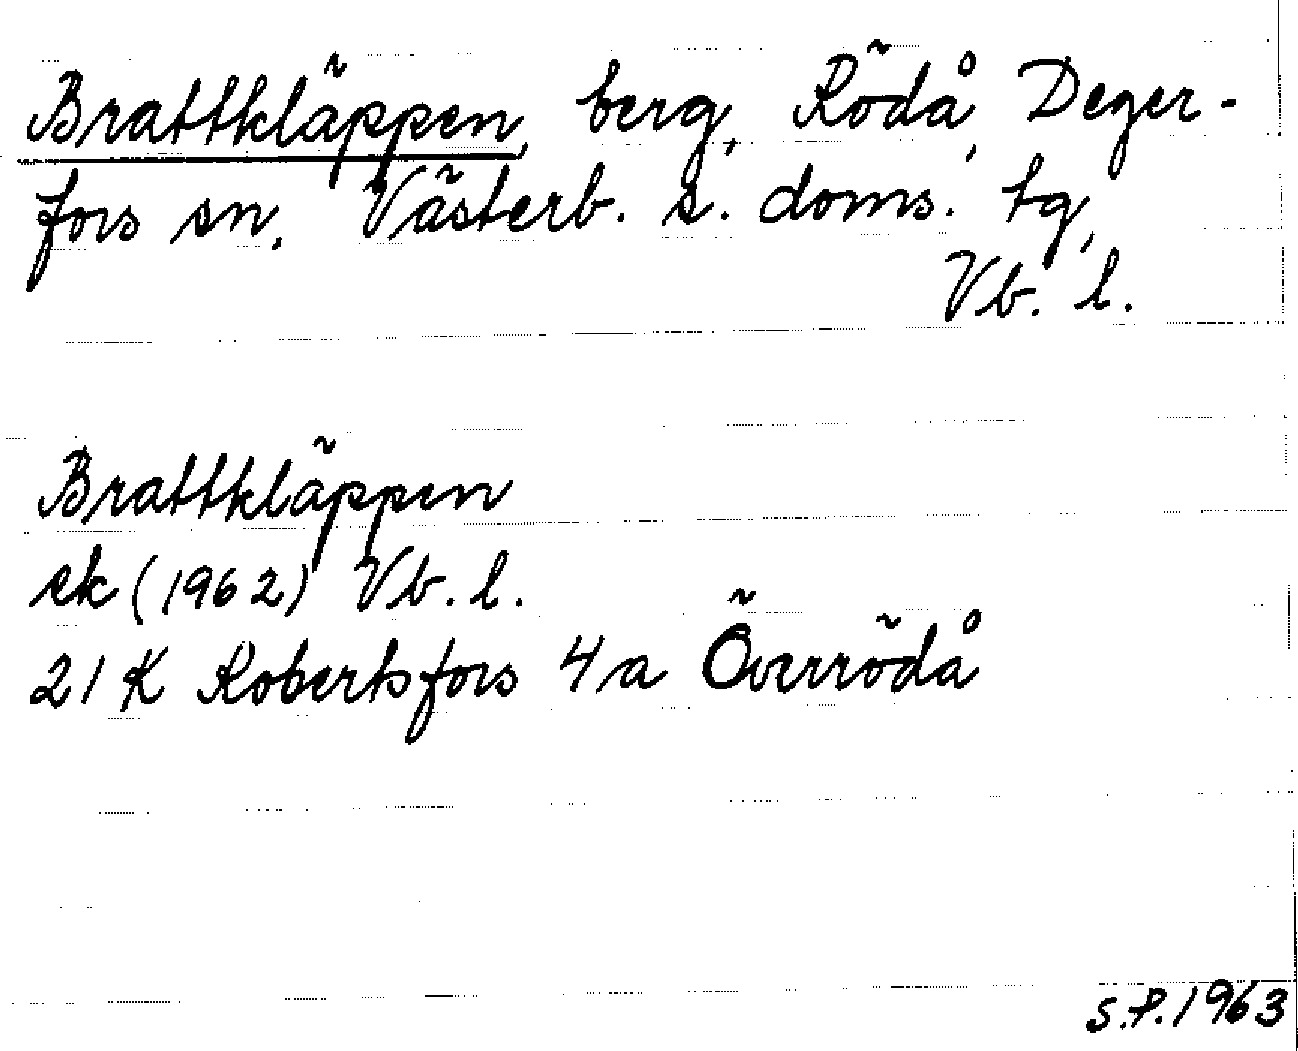 Brattkläppen, berg, Rödå, Deger-
fors sn, Västerb. s. doms. tg,
Vb. l.
Brattkläppen
ek (1962) Vb. l.
21 K Robertsfors 4 a Överrödå
S.P. 1963